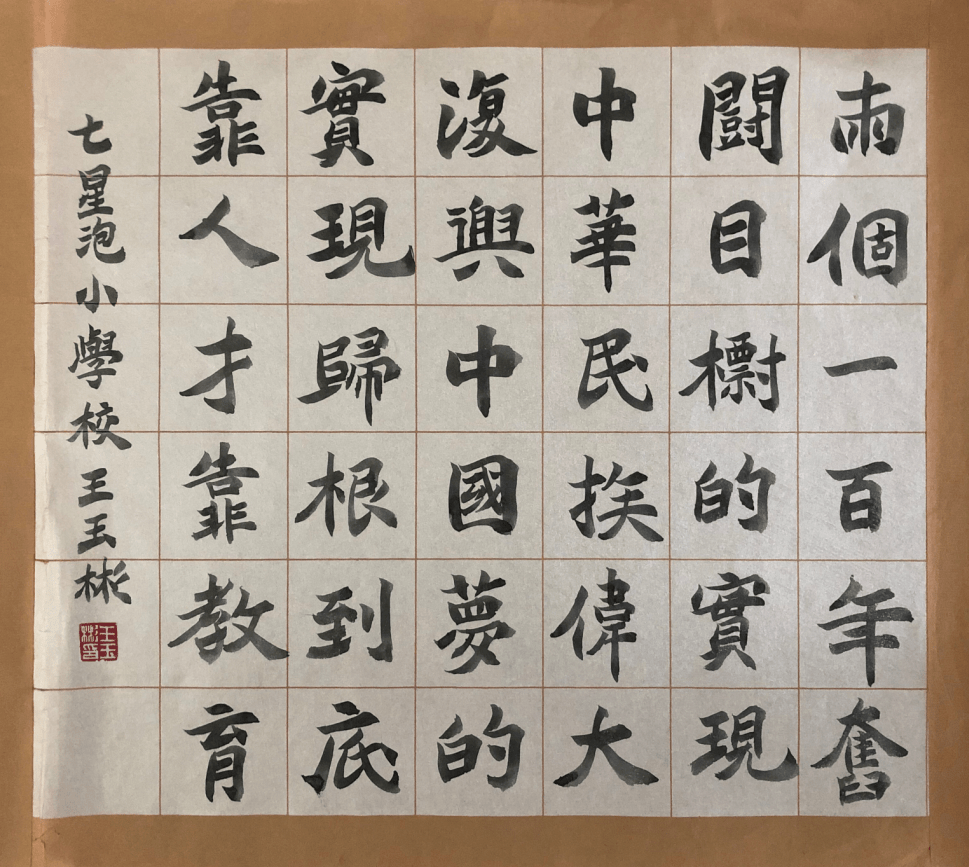 兩個一百年奮
闘目標的實現
中華民族偉大
復興中國夢的
實現歸根到底
靠人才靠教育
七星泡小學校王玉彬